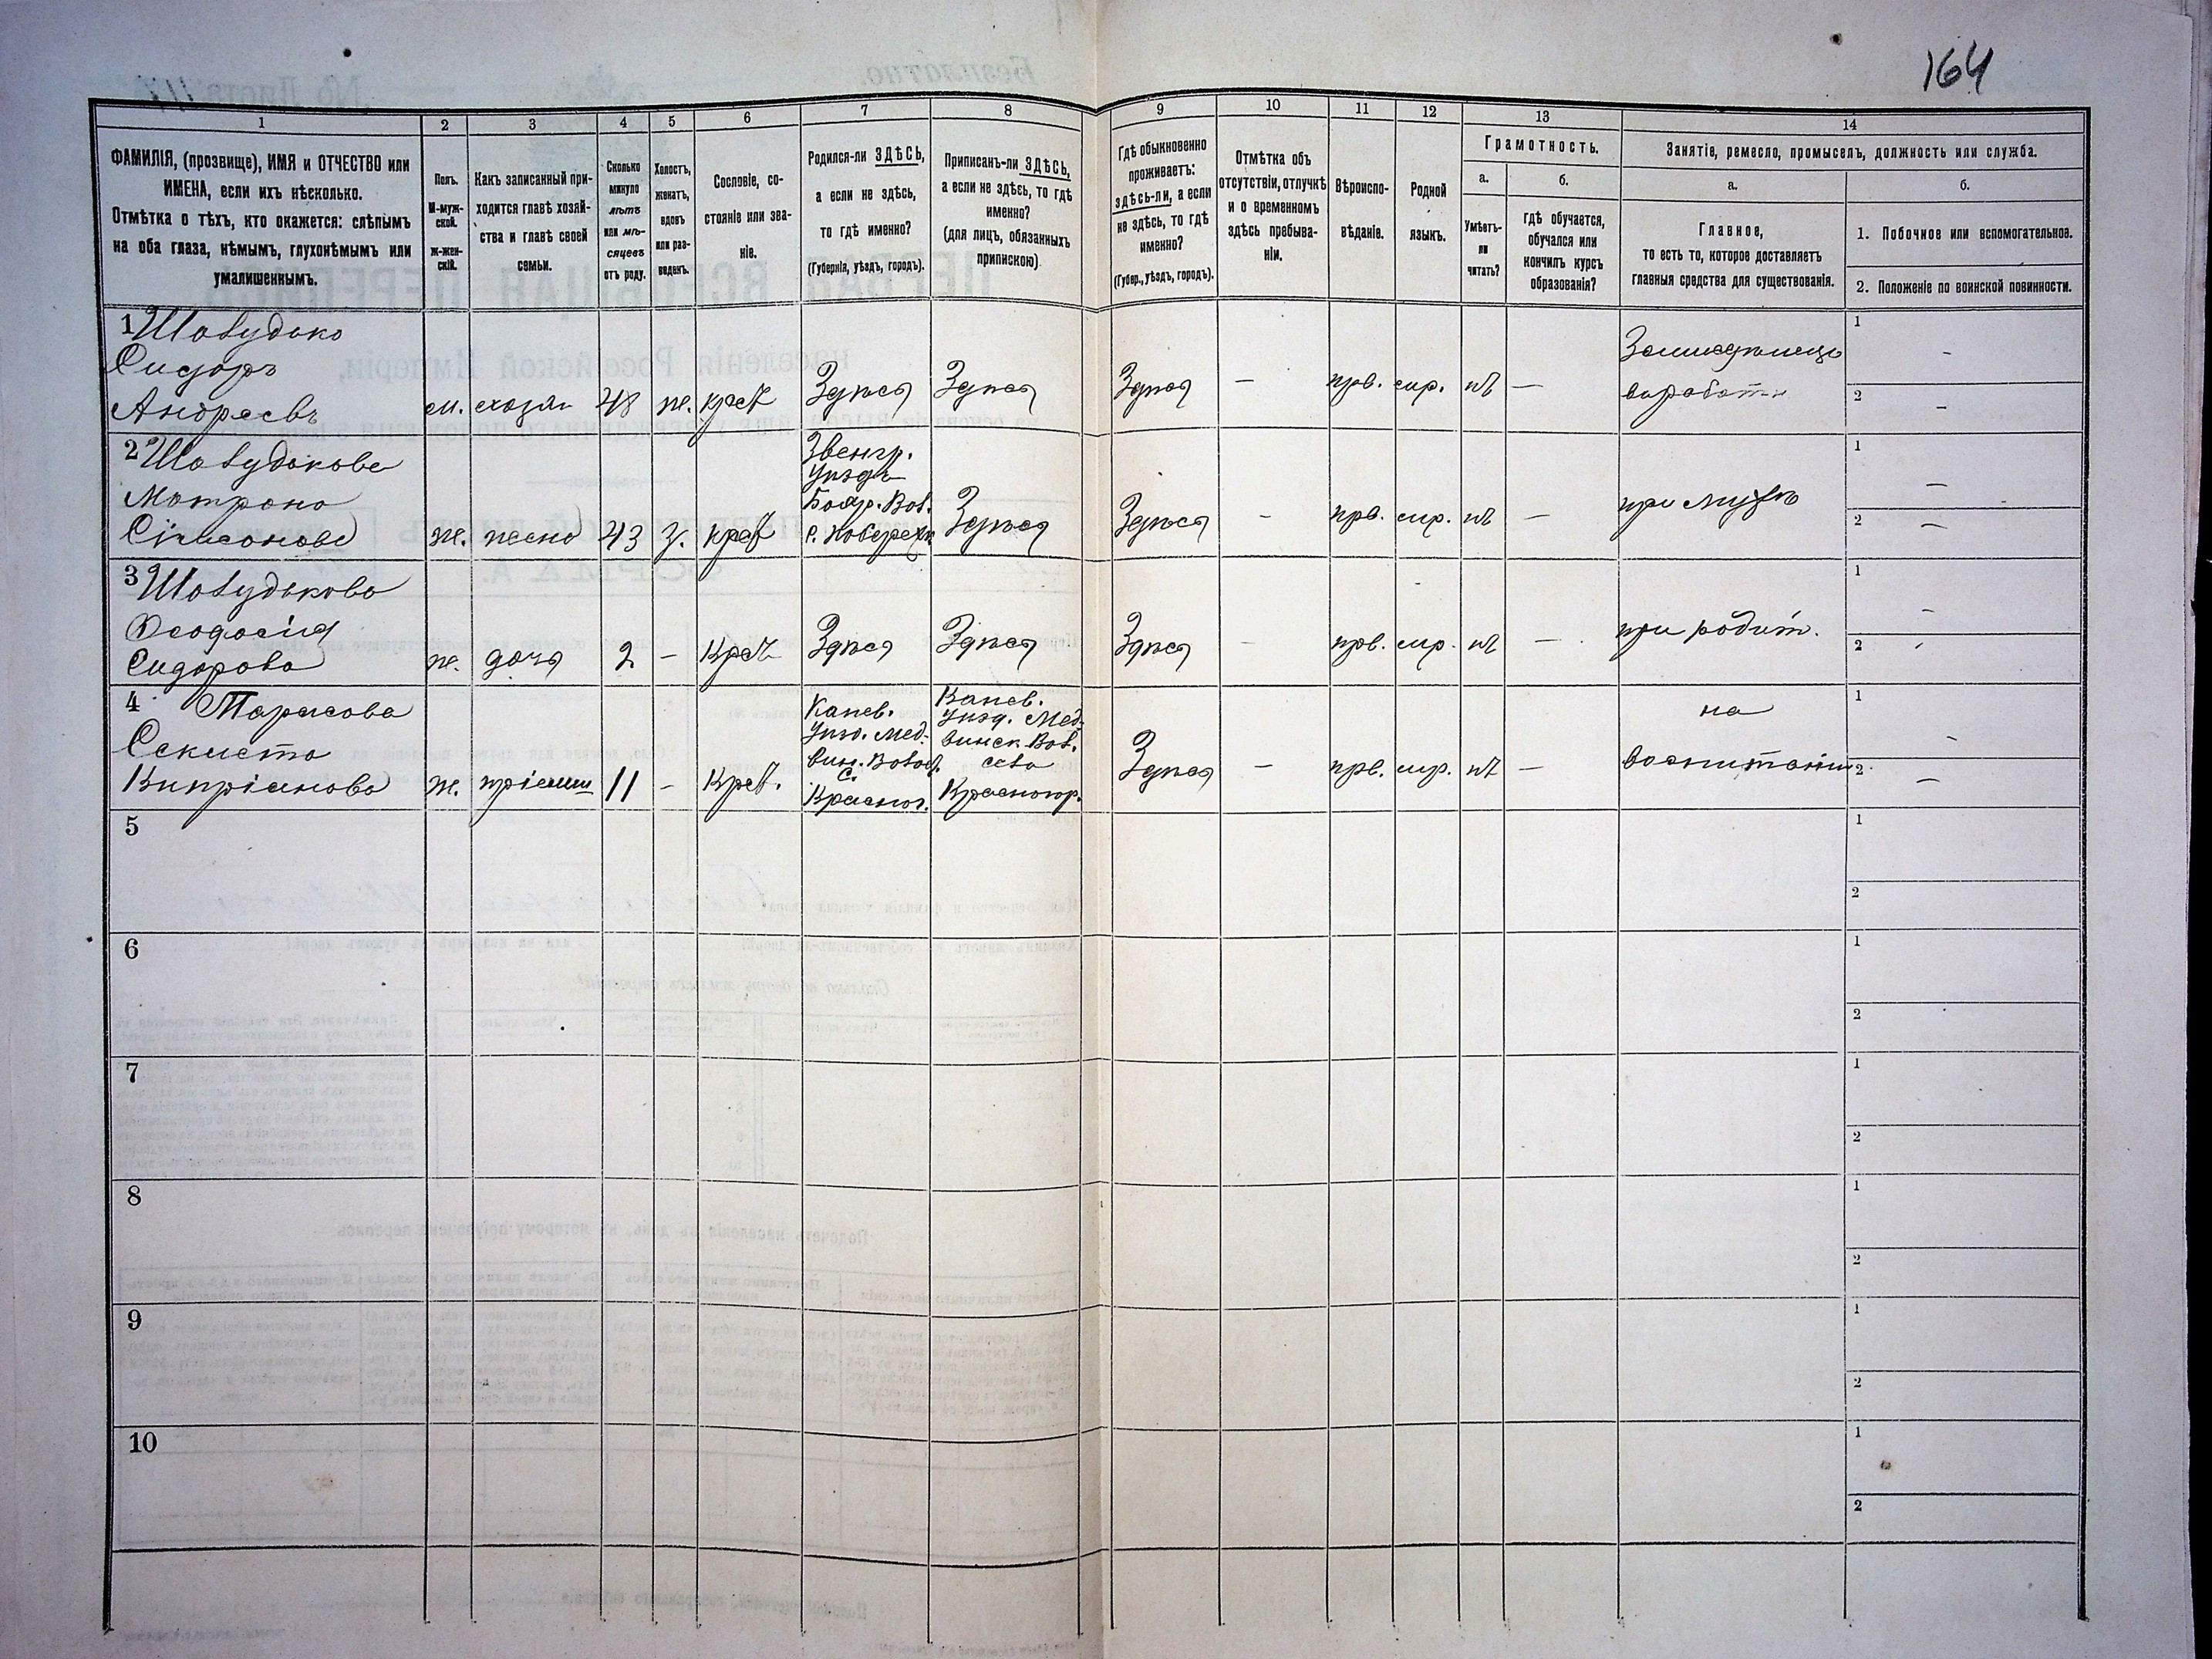 164
1
2
3
4
5
6
7
8
9
10
11
12
13
14
ФАМИЛІЯ, (прозвище), ИМЯ и ОТЧЕСТВО или
ИМЕНА, если ихъ нѣсколько.
Отмѣтка о тѣхъ, кто окажется: слѣпымъ
на оба глаза, нѣмымъ, глухонѣмымъ или
умалишеннымъ.
Полъ.
М-муж-
ской.
ж-жен-
скій.
Какъ записанный при-
ходится главѣ хозяй-
ства и главѣ своей
семьи.
Сколько
минуло
лѣтъ
или мѣ-
сяцевъ
отъ роду.
Холостъ,
женатъ,
вдовъ
или раз-
веденъ.
Сословіе, со-
стояніе или зва-
ніе.
Родился-ли ЗДѢСЬ,
а если не здѣсь,
то гдѣ именно?
(Губернія, уѣздъ, городъ).
Приписанъ-ли ЗДѢСЬ,
а если не здѣсь, то гдѣ
именно?
(для лицъ, обязанныхъ
припискою)
Гдѣ обыкновенно
проживаетъ:
здѣсь-ли, а если
не здѣсь, то гдѣ
именно?
(Губер., уѣздъ, городъ).
Отмѣтка объ
отсутствіи, отлучкѣ
и о временномъ
здѣсь пребыва-
ніи.
Вѣроиспо-
вѣданіе.
Родной
языкъ.
Грамотность.
а.
Умѣетъ-
ли
читать?
б.
гдѣ обучается,
обучался или
кончилъ курсъ
образованія?
Занятіе, ремесло, промыселъ, должность или служба.
а.
Главное,
то есть то, которое доставляетъ
главныя средства для существованія.
б.
1. Побочное или вспомогательное.
2. Положеніе по воинской повинности.
1
Сидоръ
Андреевъ
м. хозя. 48 ж. крес
Здѣся
Здѣся
Здѣся
—
прв. мр. нѣ —
1 —
2 —
2
Мотрона
ж. жена 43 з. крес
Звенгр.
Уѣздъ
Бояр. Вол.
Здѣся
Здѣся
-
прв. мр. нѣ —
при мужѣ
1 —
2 —
3
Феодосія
Сидорова
ж. дочь 2 — Крес
Здѣся
Здѣся
Здѣся
-
прв. мр. нѣ —
при родит.
1 -
2 -
4 Тарасова
Кипріанова
ж. пріемыш 11 - Крес.
Канев.
Уѣзд. Мед-
вин. Волос.
с.
Красног.
Канев.
Уѣзд. Мед-
винск. Вол.
село
Красногор.
Здѣся
—
прв. мр. нѣ —
на
воспитаніи
1 -
2 —
5
1
2
6
1
2
7
1
2
8
1
2
9
1
2
10
1
2